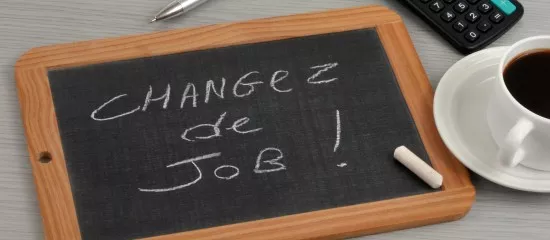 CHANGEZ
de
JOB !